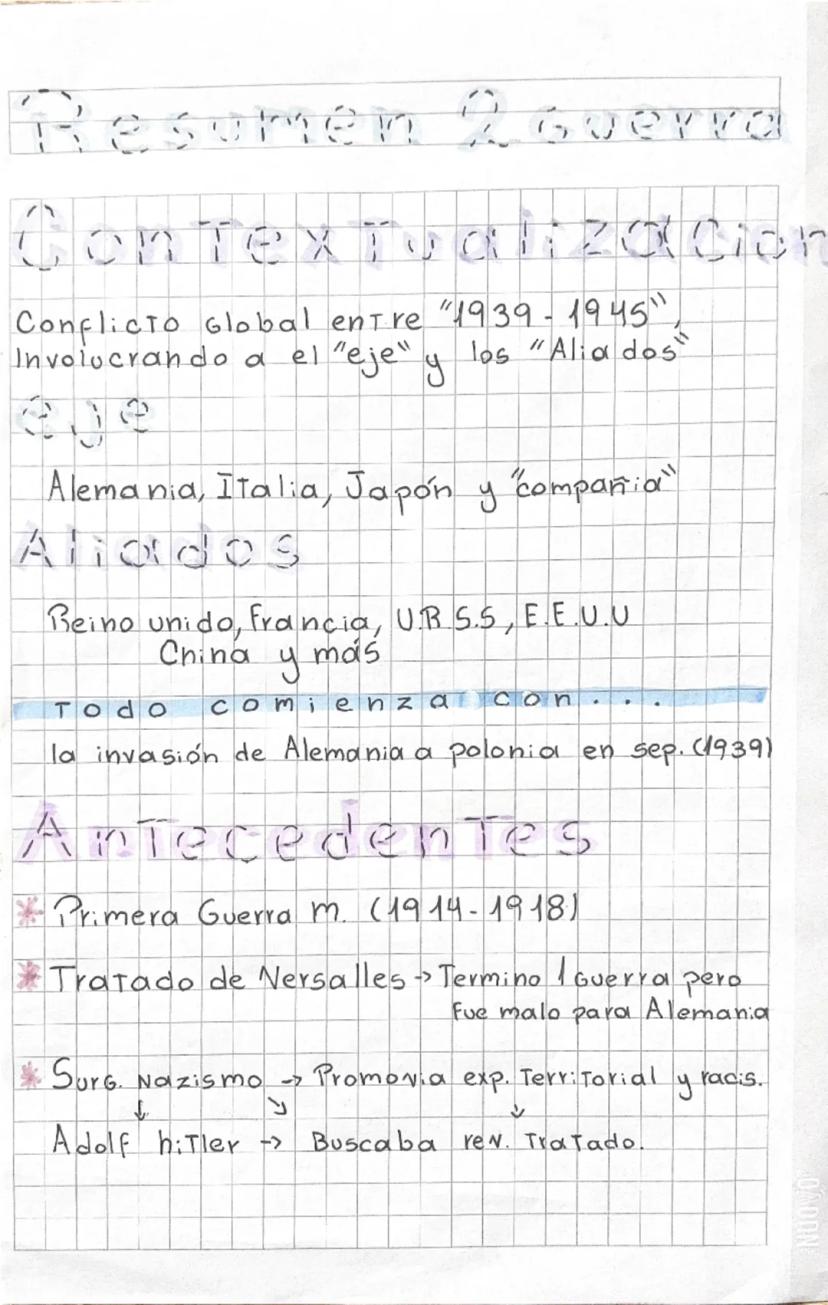 Resumen 2 Guerra
Contextualizacion
Conflicto Global entre "1939-1945",
Involucrando a el "eje" y los "Aliados"
eje
Alemania, Italia, Japón y "compañia"
Aliados
Reino unido, Francia, U.R.S.S, E.E.U.U
China y más
Todo comienza con...
la invasión de Alemania a polonia en sep. (1939)
Antecedentes
* Primera Guerra m. (1914-1918)
* Tratado de Versalles → Termino 1 Guerra pero
Fue malo para Alemania
* Surg. Nazismo → Promovia exp. Territorial y racis.
↓ ↘ ↓
Adolf hitler → Buscaba rev. Tratado.